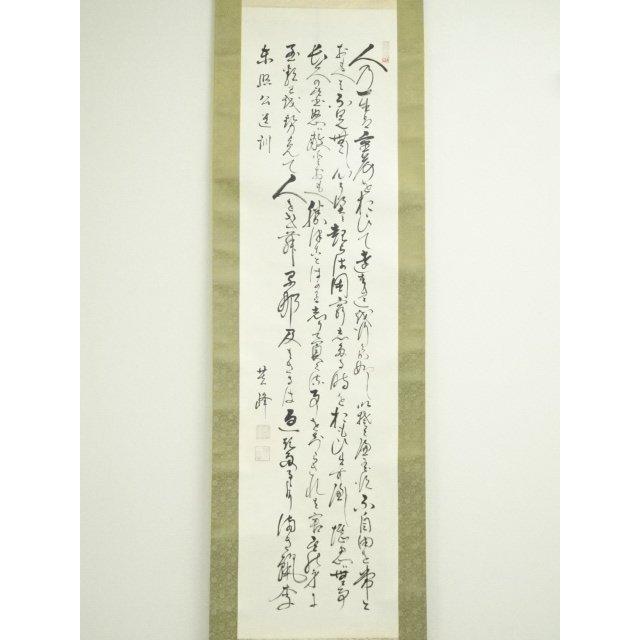 人の一生は重荷をおひて遠き道を行が如し いそぐべからず 不自由を常と
おもへは不足無し 心に望起らは困窮したる時をおもひ出すへし 堪忍は無事
長久の基 怒は敵とおもへ 勝ことはかりをしりて負る事をしらされは害其身に
至る 己を責て人をせむるな 及さるは過たるよりまされり
東照公遺訓